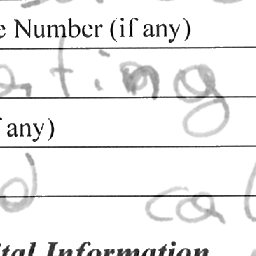 e Number (if any)
rting
f any)
d cal
ital Information